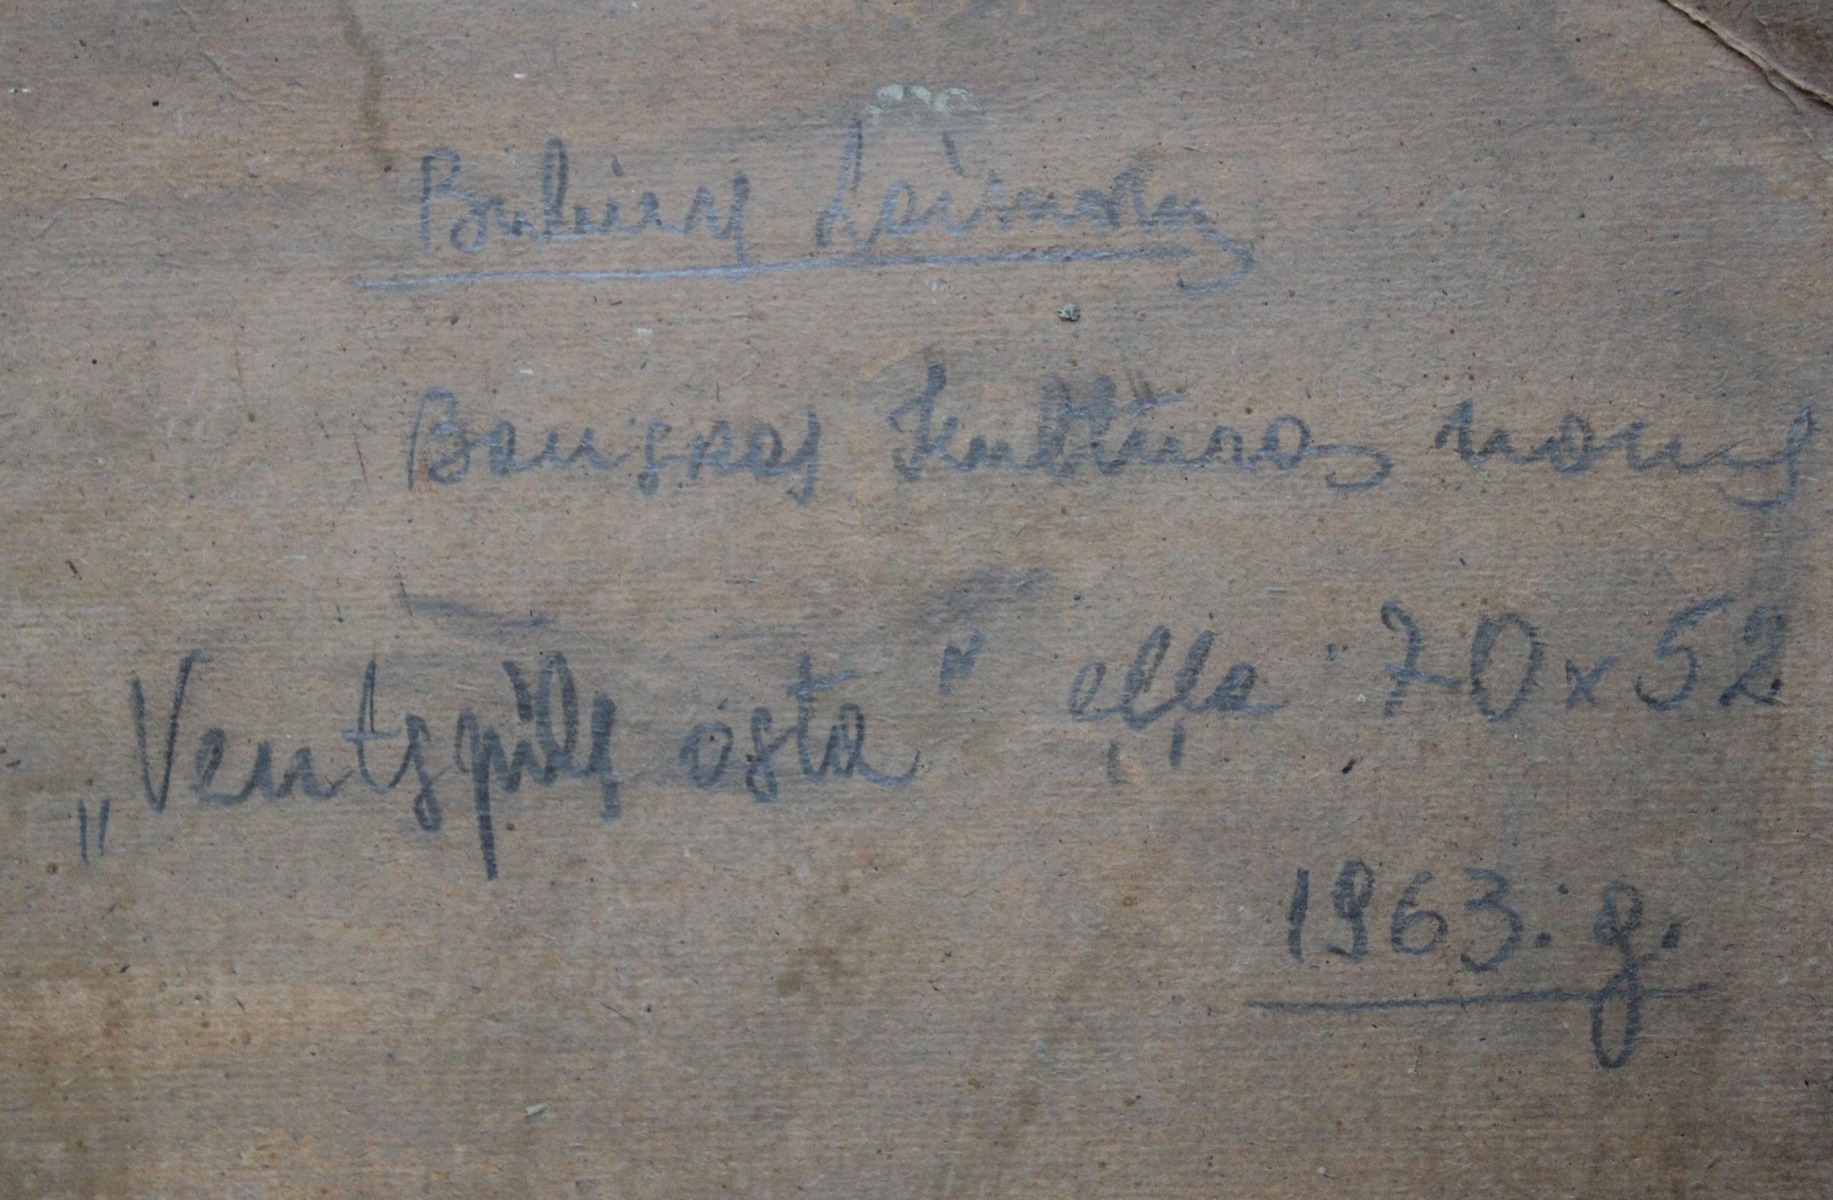 Laimonis
Bauskas Kultūras nams
"Ventspils osta" eļļa 70x52
1963. g.